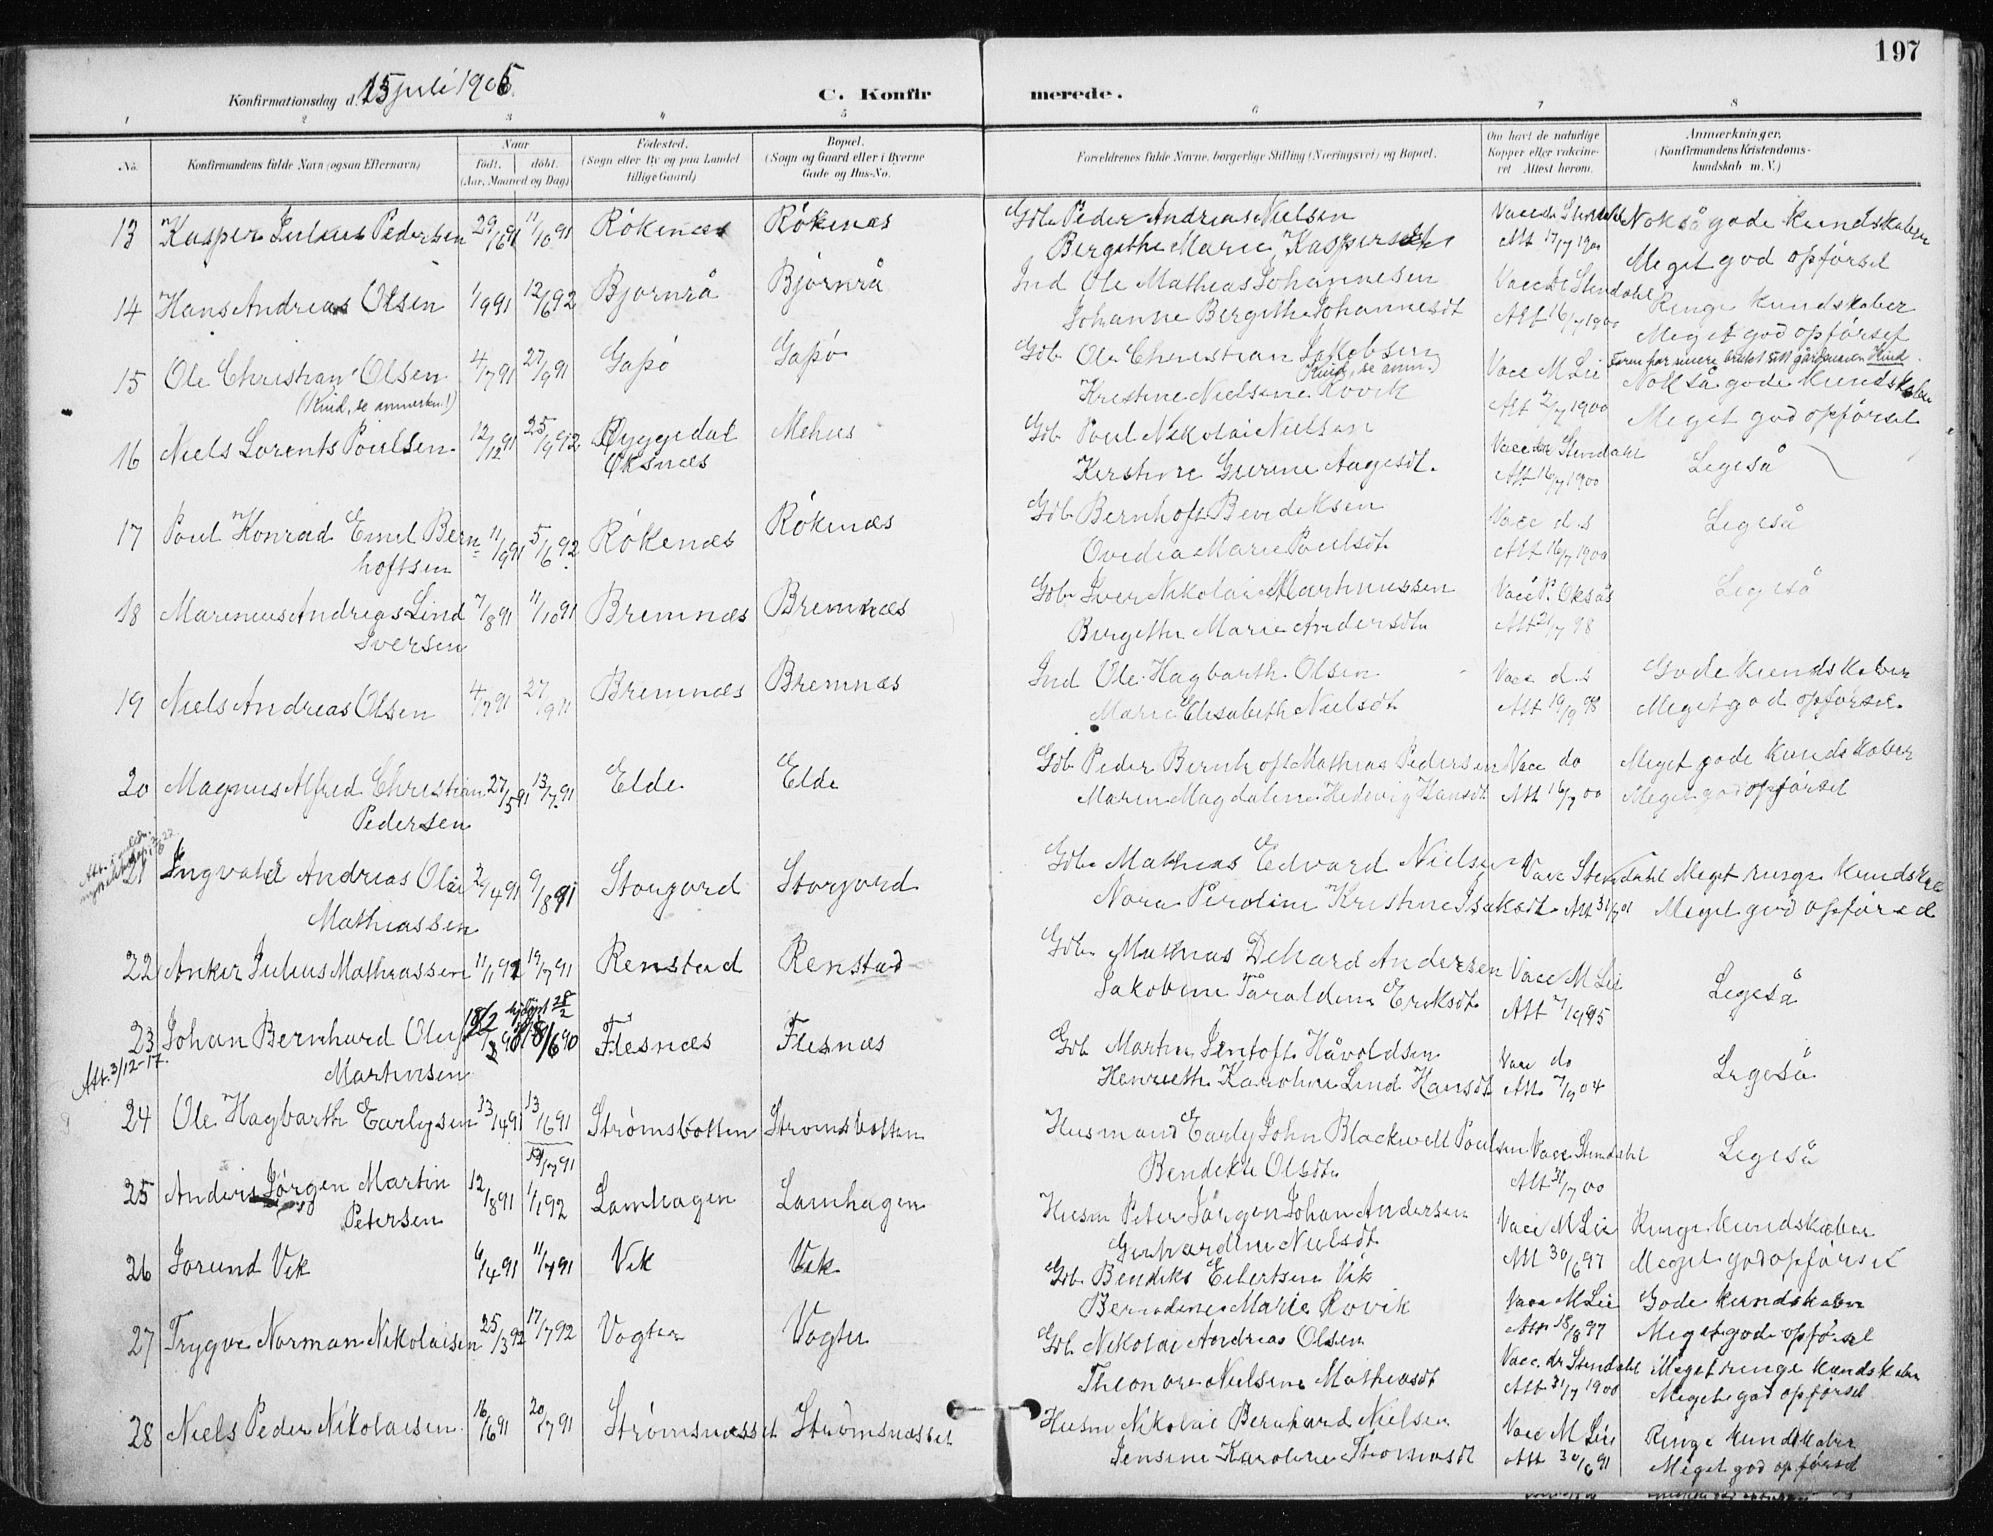 197
Konfirmationsdag d. 15 juli 1906.
C. Konfirmerede.
1 2 3 4 5 6 7 8
No. Konfirmandens fulde Navn (ogsaa Efternavn) Naar født. døbt. (Aar, Maaned og Dag) Fødested. (Sogn eller By og paa Landet tillige Gaard) Bopæl. (Sogn og Gaard eller i Byerne Gade og Hus-No. Forældrenes fulde Navne, borgerlige Stilling (Næringsvei) og Bopæl. Om havt de naturlige Kopper eller vaccineret Attest herom. Anmærkninger. (Konfirmandens Kristendomskundskab m. V.)
13 Kasper Julius Pedersen 29/6 91 11/10 91 Rökenæs Rökenæs Gdb Peder Andreas Nielsen Vacc dr Stendahl Nokså gode kundskaber
Bergithe Marie Kaspersdt Att 17/7 1900 Meget god opförsel
14 Hans Andreas Olsen 1/9 91 12/6 92 Bjørnrå Bjørnrå Ind Ole Mathias Johannesen Vacc dr Stendahl Ringe kundskaber
Johanne Bergithe Johannesdt Att 16/7 1900 Meget god opförsel
15 Ole Christian Olsen 4/7 91 27/9 91 Gapö Gapö Gdb Ole Christian Jakobsen Vacc M Lie Nokså gode kundskaber
(Kind, se anmerkn.!) (Kind, se anm.) Kristine Nielsine Rovik Att 2/7 1900 Meget god opförsel
16 Niels Lorents Poulsen 12/12 91 25/9 92 Ryggedal Öksnæs Mehus Gdb Poul Nikolai Nielsen Vacc dr Stendahl Ligeså
Kerstine Aagesdt. Att 16/7 1900
17 Poul Konrad Emil Bern= 11/9 91 5/6 92 Rökenæs Rökenæs Gdb Bernhoft Bendiksen Vacc d.s Ligeså
hoftsen Ovedia Marie Poulsdt. Att 16/7 1900
18 Marinius Andreas Lind 7/8 91 11/10 91 Bremnæs Bremnæs Gdb Iver Nikolai Martinussen Vacc P. Oksås Ligeså
Iversen Bergithe Marie Andersdt. Att 21/7 98
19 Niels Andreas Olsen 4/7 91 27/9 91 Bremnæs Bremnæs Ind Ole Hagbarth Olsen Vacc d.s Gode kundskaber
Marie Elisabeth Nielsdt Att 19/9 98 Meget god opförsel.
20 Magnus Alfred Christian 27/5 91 13/7 91 Elde Elde Gdb Peder Bernhoft Mathias Pedersen Vacc do Meget gode kundskaber
Pedersen Maren Magdaline Hedevig Hansdt Att 16/7 00 Meget god opförsel
21 Ingvald Andreas Olai 2/4 91 9/8 91 Storjord Storjord Gdb Mathias Edvard Nielsen Vacc Stendahl Meget ringe kundskab
Mathiassen Nora Peroline Kristine Isaksdt Att 31/7 01 Meget god opförsel
22 Anker Julius Mathiassen 11/1 91 19/7 91 Renstad Renstad Gdb Mathias Andersen Vacc M Lie Ligeså
Jakobine Eriksdt. Att 7/9 95
23 Johan Bernhard Oluf 18/6 90 Flesnæs Flesnæs Gdb Martin Jentoft Håvoldsen Vacc do Ligeså
Att. 3/12-17. Martinsen Henriethe Karoline Lind Hansdt Att 7/9 04
24 Ole Hagbarth Earlysen 13/4 91 13/6 91 Strömsbotten Strömsbotten Husmand Early John Blackwell Poulsen Vacc Stendahl Ligeså
Bendikte Olsdt. Att 31/7 00
25 Anders Jörgen Martin 12/8 91 1/1 92 Lamhagen Lamhagen Husm Peter Jörgen Johan Andersen Vacc M Lie Ringe kundskaber
Petersen Gerhardine Nielsdt Att 30/6 97 Meget god opförsel
26 Jorund Vik 6/4 91 11/7 91 Vik Vik Gdb Bendiks Eilertsen Vik Vacc M Lie Gode kundskaber
Berndine Marie Rovik Att 18/8 97 Meget god opförsel
27 Trygve Norman Nikolaisen 25/3 92 17/7 92 Vogter Vogter Gdb Nikolai Andreas Olsen Vacc. dr Stendahl Meget ringe kundskaber
Theonora Nielsine Mathiasdt Att 31/7 1900 Meget god opförsel
28 Niels Peder Nikolaisen 16/6 91 20/7 91 Strömsnesset Strömsnæsset Husm Nikolai Bernhard Nielsen Vacc M Lie Ringe kundskaber
Jensine Karoline Thomasdt Att 30/6 91 Meget god opförsel